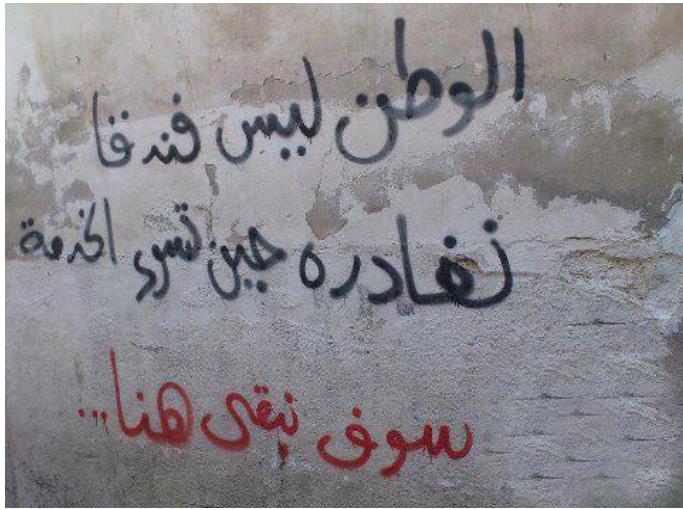 الوطن ليس فندقا
نغادره حين تسوء الخدمة
سوف نبقى هنا...